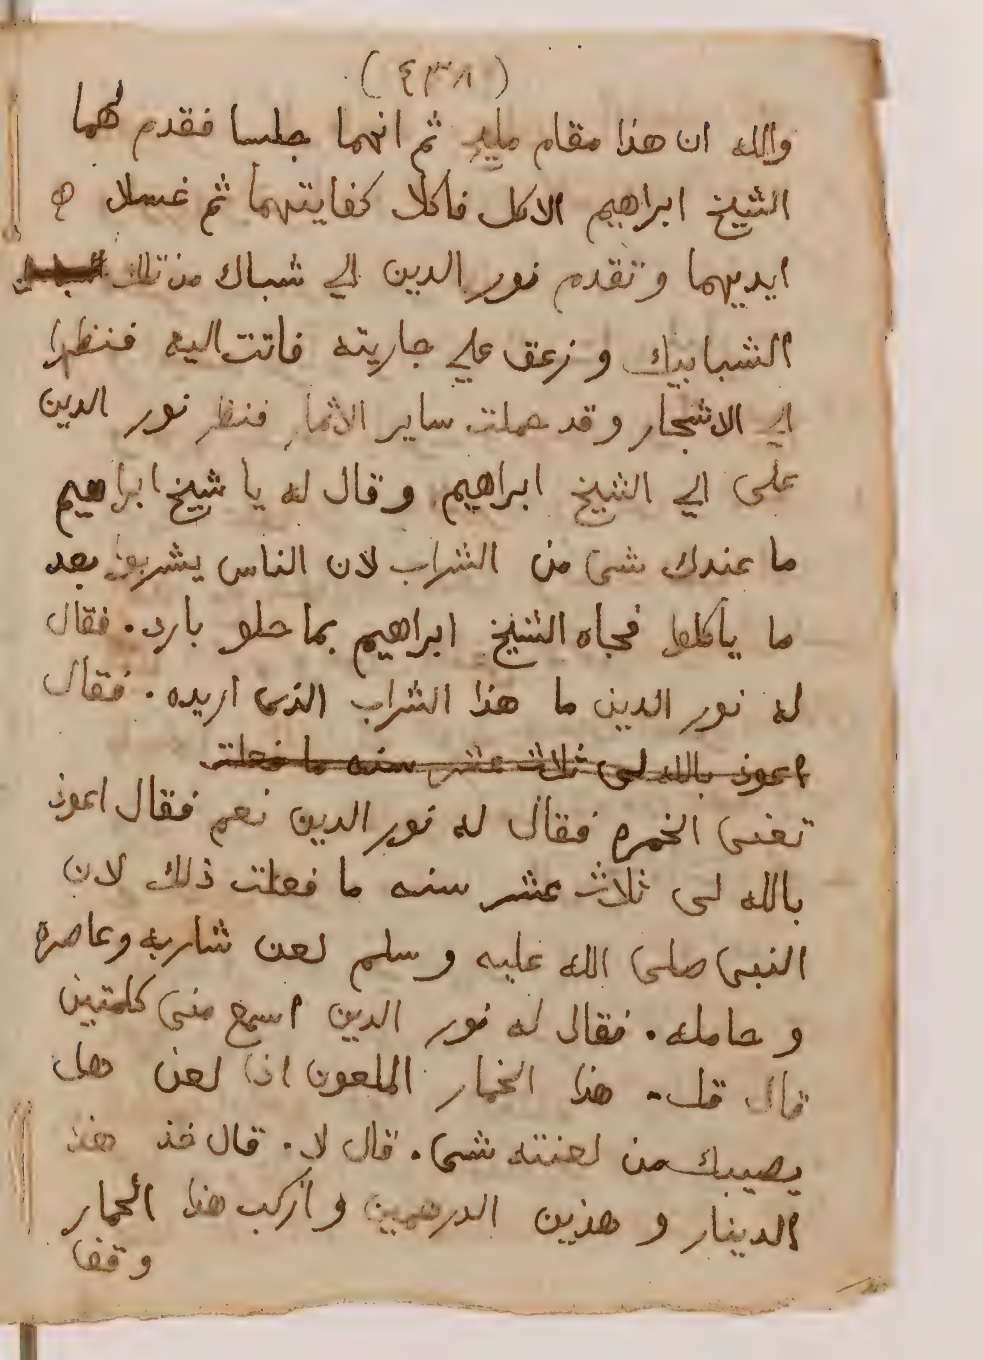 (٤٣٨)
والله ان هذا مقام مليح ثم انهما جلسا فقدم لهما
الشيخ ابراهيم الاكل فاكلا كفايتهما ثم غسلا
ايديهما وتقدم نور الدين الي شباك من تلك
الشبابيك وزعق علي جاريته فاتت اليه فنظرا
الي الاشجار وقد حملت ساير الاثمار فنظر نور الدين
على الي الشيخ ابراهيم وقال له يا شيخ ابراهيم
ما عندك شى من الشراب لان الناس يشربوا بعد
ما ياكلوا فجاه الشيخ ابراهيم بما حلو بارد. فقال
له نور الدين ما هذا الشراب الذى اريده. فقال
اعوذ بالله لى ثلاث عشر سنه ما فعلت
تعنى الخمره فقال له نور الدين نعم فقال اعوذ
بالله لى ثلاث عشر سنه ما فعلت ذلك لان
النبى صلى الله عليه وسلم لعن شاربه وعاصره
وحامله. فقال له نور الدين اسمع منى كلمتين
قال قل. هذا الخمار الملعون اذا لعن هل
يصيبك من لعنته شى. قال لا. قال خذ هذا
الدينار و هذين الدرهمين واركب هذا الحمار
وقفا